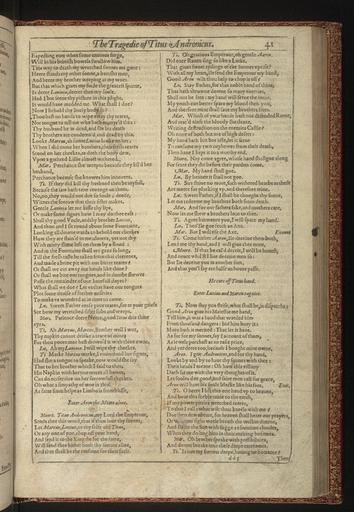 The Tragedie of Titus Andronicus. 41
Expecting euer when some enuious surge,
Will in his brinish bowels swallow him.
This way to death my wretched sonnes are gone:
Heere stands my other sonne, a banisht man,
And heere my brother weeping at my woes.
But that which giues my soule the greatest spurne,
Is deere Lauinia, deerer then my soule.
Had I but seene thy picture in this plight,
It would haue madded me. What shall I doe?
Now I behold thy liuely body so?
Thou hast no hands to wipe away thy teares,
Nor tongue to tell me who hath
Thy husband he is dead, and for his death
Thy brothers are condemn'd, and dead by this.
Looke Marcus, ah sonne Lucius looke on her:
When I did name her brothers, then fresh teares
Stood on her cheekes, as doth the hony dew,
Vpon a gathred Lillie almost withered.
Mar. Perchance she weepes because they kil'd her
husband,
Perchance because she knowes him innocent.
Ti. If they did kill thy husband then be ioyfull,
Because the law hath tane reuenge on them.
No, no, they would not doe so foule a deede,
Witnes the sorrow that their sister makes.
Gentle Lauinia let me kisse thy lips,
Or make some signes how I may do thee ease:
Shall thy good Vncle, and thy brother Lucius,
And thou and I sit round about some Fountaine,
Looking all downewards to behold our cheekes
How they are stain'd
With miery slime left on them by a flood:
And in the Fountaine shall we gaze so long,
Till the fresh taste be taken from that cleerenes,
And made a brine pit with our bitter teares?
Or shall we cut away our hands like thine?
Or shall we bite our tongues, and in dumbe shewes
Passe the remainder of our hatefull dayes?
What shall we doe? Let vs that haue our tongues
Plot some deuise of further
To make vs wondred at in time to come.
Lu. Sweet Father cease your teares, for at your griefe
See how my wretched sister sobs and weeps.
Mar. Patience deere Neece, good Titus drie thine
eyes.
Ti. Ah Marcus, Marcus, Brother well I wot,
Thy napkin cannot drinke a teare of mine,
For thou poore man hast drown'd it with thine owne.
Lu. Ah my Lauinia I will wipe thy cheekes.
Ti. Marke Marcus marke, I vnderstand her signes,
Had she a tongue to speake, now would she say
That to her brother which I said to thee.
His Napkin with
Can do no seruice on her sorrowfull cheekes.
Oh what a simpathy of woe is this!
As farre from helpe as Limbo is from blisse,
Enter Aron the Moore alone.
Moore. Titus Andronicus, my Lord the Emperour,
Sends thee this word, that if thou loue thy sonnes,
Let Marcus, Lucius, or thy selfe old Titus,
Or any one of you, chop off your hand,
And send it to the King: he for the same,
Will send thee hither both thy sonnes aliue,
And that shall be the ransome for their fault.
Ti. Oh gratious Emperour, oh gentle Aaron.
Did euer Rauen sing so like a Larke,
That giues sweet tydings of the Sunnes vprise?
With all my heart, Ile send the Emperour my hand,
Good Aron wilt thou help to chop it off?
Lu. Stay Father, for that noble hand of thine,
That hath throwne downe so many enemies,
Shall not be sent: my hand will serue the turne,
My youth can better spare my bloud then you,
And therfore mine shall saue my brothers liues.
Mar. Which of your hands hath not defended Rome,
And rear'd aloft the bloody Battleaxe,
Writing destruction on the enemies Castle?
Oh none of both but are of high desert:
My hand hath bin but idle, let it serue
To ransome my two nephewes from their death,
Then haue I kept it to a worthy end.
Moore. Nay come agree, whose hand shallgoe along
For feare they die before their pardon come.
Mar. My hand shall goe.
Lu. By heauen it shall not goe.
Ti. Sirs striue no more, such withered hearbs as these
Are meete for plucking vp, and therefore mine.
Lu. Sweet Father, if I shall be thought thy sonne,
Let me redeeme my brothers both from death.
Mar. And for our fathers sake, and mothers care,
Now let me shew a brothers loue to thee.
Ti. Agree betweene you, I will spare my hand.
Lu. Then Ile goe fetch an Axe.
Mar. But I will vse the Axe. Exeunt
Ti. Come hither Aaron, Ile deceiue them both,
Lend me thy hand, and I will giue thee mine,
Moore. If that be cal'd deceit, I will be honest,
And neuer whil'st I liue deceiue men so:
But Ile deceiue you in another sort,
And that you'l say ere halfe an houre passe.
He cuts off Titus hand.
Enter Lucius and Marcus againe.
Ti. Now stay you strife, what shall be, is dispatcht:
Good Aron giue his Maiestie me hand,
Tell him, it was a hand that warded him
From thousand dangers: bid him bury it:
More hath it merited: That let it haue.
As for my sonnes, say I account of them,
As iewels purchast at an easie price,
And yet deere too, because I bought mine owne.
Aron. I goe Andronicus, and for thy hand,
Looke by and by to haue thy sonnes with thee:
Their heads I meane: Oh how this villany
Doth fat me with the very thoughts of it.
Let fooles doe good, and faire men call for grace,
Aron will haue his soule blacke like his face. Exit.
Ti. O heere I lift this one hand vp to heauen,
And bow this feeble ruine to the earth,
If any power pitties wretched teares,
To that I call: what wilt thou kneele with me?
Doe then deare heart, for heauen shall heare our prayers,
Or with our sighs weele breath the welkin dimme,
And staine the Sun with fogge as somtime cloudes,
When they do hug him in their melting bosomes.
Mar. Oh brother speake with possibilities,
And do not breake into these deepe extreames.
Ti. Is not my sorrow deepe, hauing no bottome?
dd 3 Then